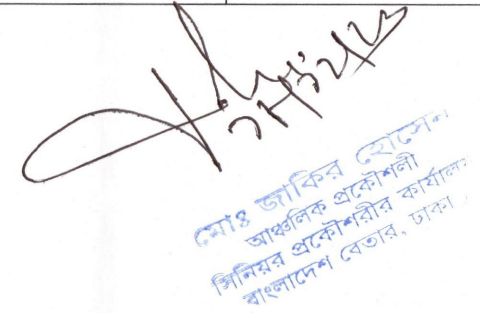 মোঃ জাকির হোসেন
আঞ্চলিক প্রকৌশলী
সিনিয়র প্রকৌশরীর কার্যালয়
বাংলাদেশ বেতার, ঢাকা